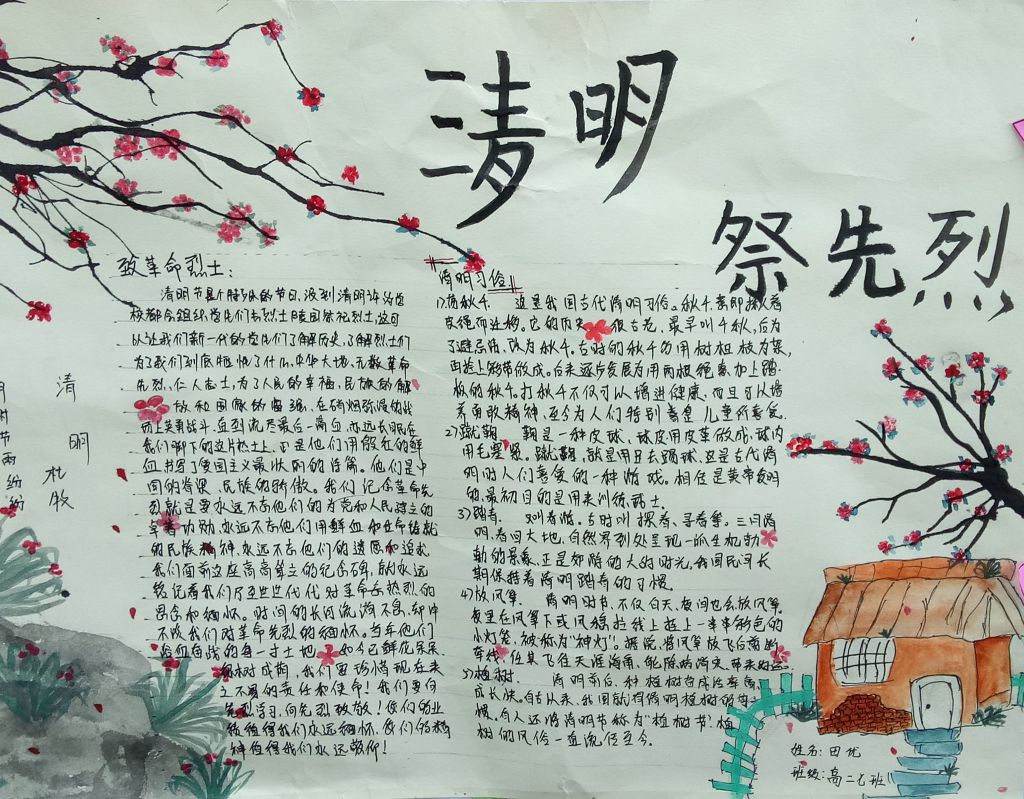 清明
祭先烈
致革命烈士:
清明节是个特殊的节日,没到清明许多学
校都会组织学生们去烈士陵园祭祀烈士,这可
以让我们新一代的学生们了解历史,了解烈士们
为了我们到底牺牲了什么。中华大地,无数革命
先烈、仁人志士,为了人民的幸福,民族的解
放和国家的富强,在硝烟弥漫的战
场上英勇战斗,直到流尽最后一滴血,永远长眠在
我们脚下的这片热土上,正是他们用殷红的鲜
血,书写了爱国主义最壮丽的诗篇。他们是中
国的脊梁、民族的骄傲。我们记念革命先
烈就是要永远不忘他们的为党和人民建立的
卓著功勋,永远不忘他们用鲜血和生命铸就
的民族精神,永远不忘他们的遗愿和追求
我们面前这座高高耸立的纪念碑,的永远
铭记着我们尽至世世代代对革命先热烈的
思念和缅怀。时间的长河流淌不息,却冲
不淡我们对革命先烈的缅怀。当年他们
浴血奋战的每一寸土地,如今已鲜花朵朵
树成荫,我们要珍惜现在来
之不易的责任和使命!我们要向
先烈学习,向先烈致敬!你们的业
绩值得我们永远缅怀,你们的精
神值得我们永远敬仰!
清明习俗
1)荡秋千 这是我国古代清明习俗。秋千,意即揪着
皮绳而迁移。它的历史很古老,最早叫千秋,后为
了避忌讳,改为秋千。古时的秋千多用树桠枝为架,
再拴上彩带做成。后来逐步发展为用两根绳索加上踏
板的秋千。打秋千不仅可以增进健康,而且可以培
养勇敢精神,至今为人们特别喜是儿童所喜爱。
2)蹴鞠 鞠是一种皮球,球皮用皮革做成,球内
用毛塞紧。蹴鞠,就是用足去踢球。这是古代清
明时人们喜爱的一种游戏。相传是黄帝发明
的,最初目的是用来训练武士。
3)踏春。 又叫春游。古时叫探春、寻春等。三月清
明,春回大地,自然界到处呈现一派生机勃
勃的景象,正是郊游的大好时光,我国民间长
期保持着清明踏青的习惯。
4)放风筝。 清明时节,不仅白天,夜间也会放风筝。
夜里在风筝下或风稳拉线上挂上一串串彩色的
小灯笼,被称为“神灯”。据说,将风筝放飞后剪断
牵线,任其飞往天涯海角,能除病消灾,带来好运
5)植树。 清明前后,种植树苗成活率高
成长快。自古以来,我国就有清明植树的习
惯。有人还将清明节称为“植树节”。植
树的风俗一直流传至今。
清
明
杜
牧
时节雨纷纷
姓名:田优
班级:高二乙班